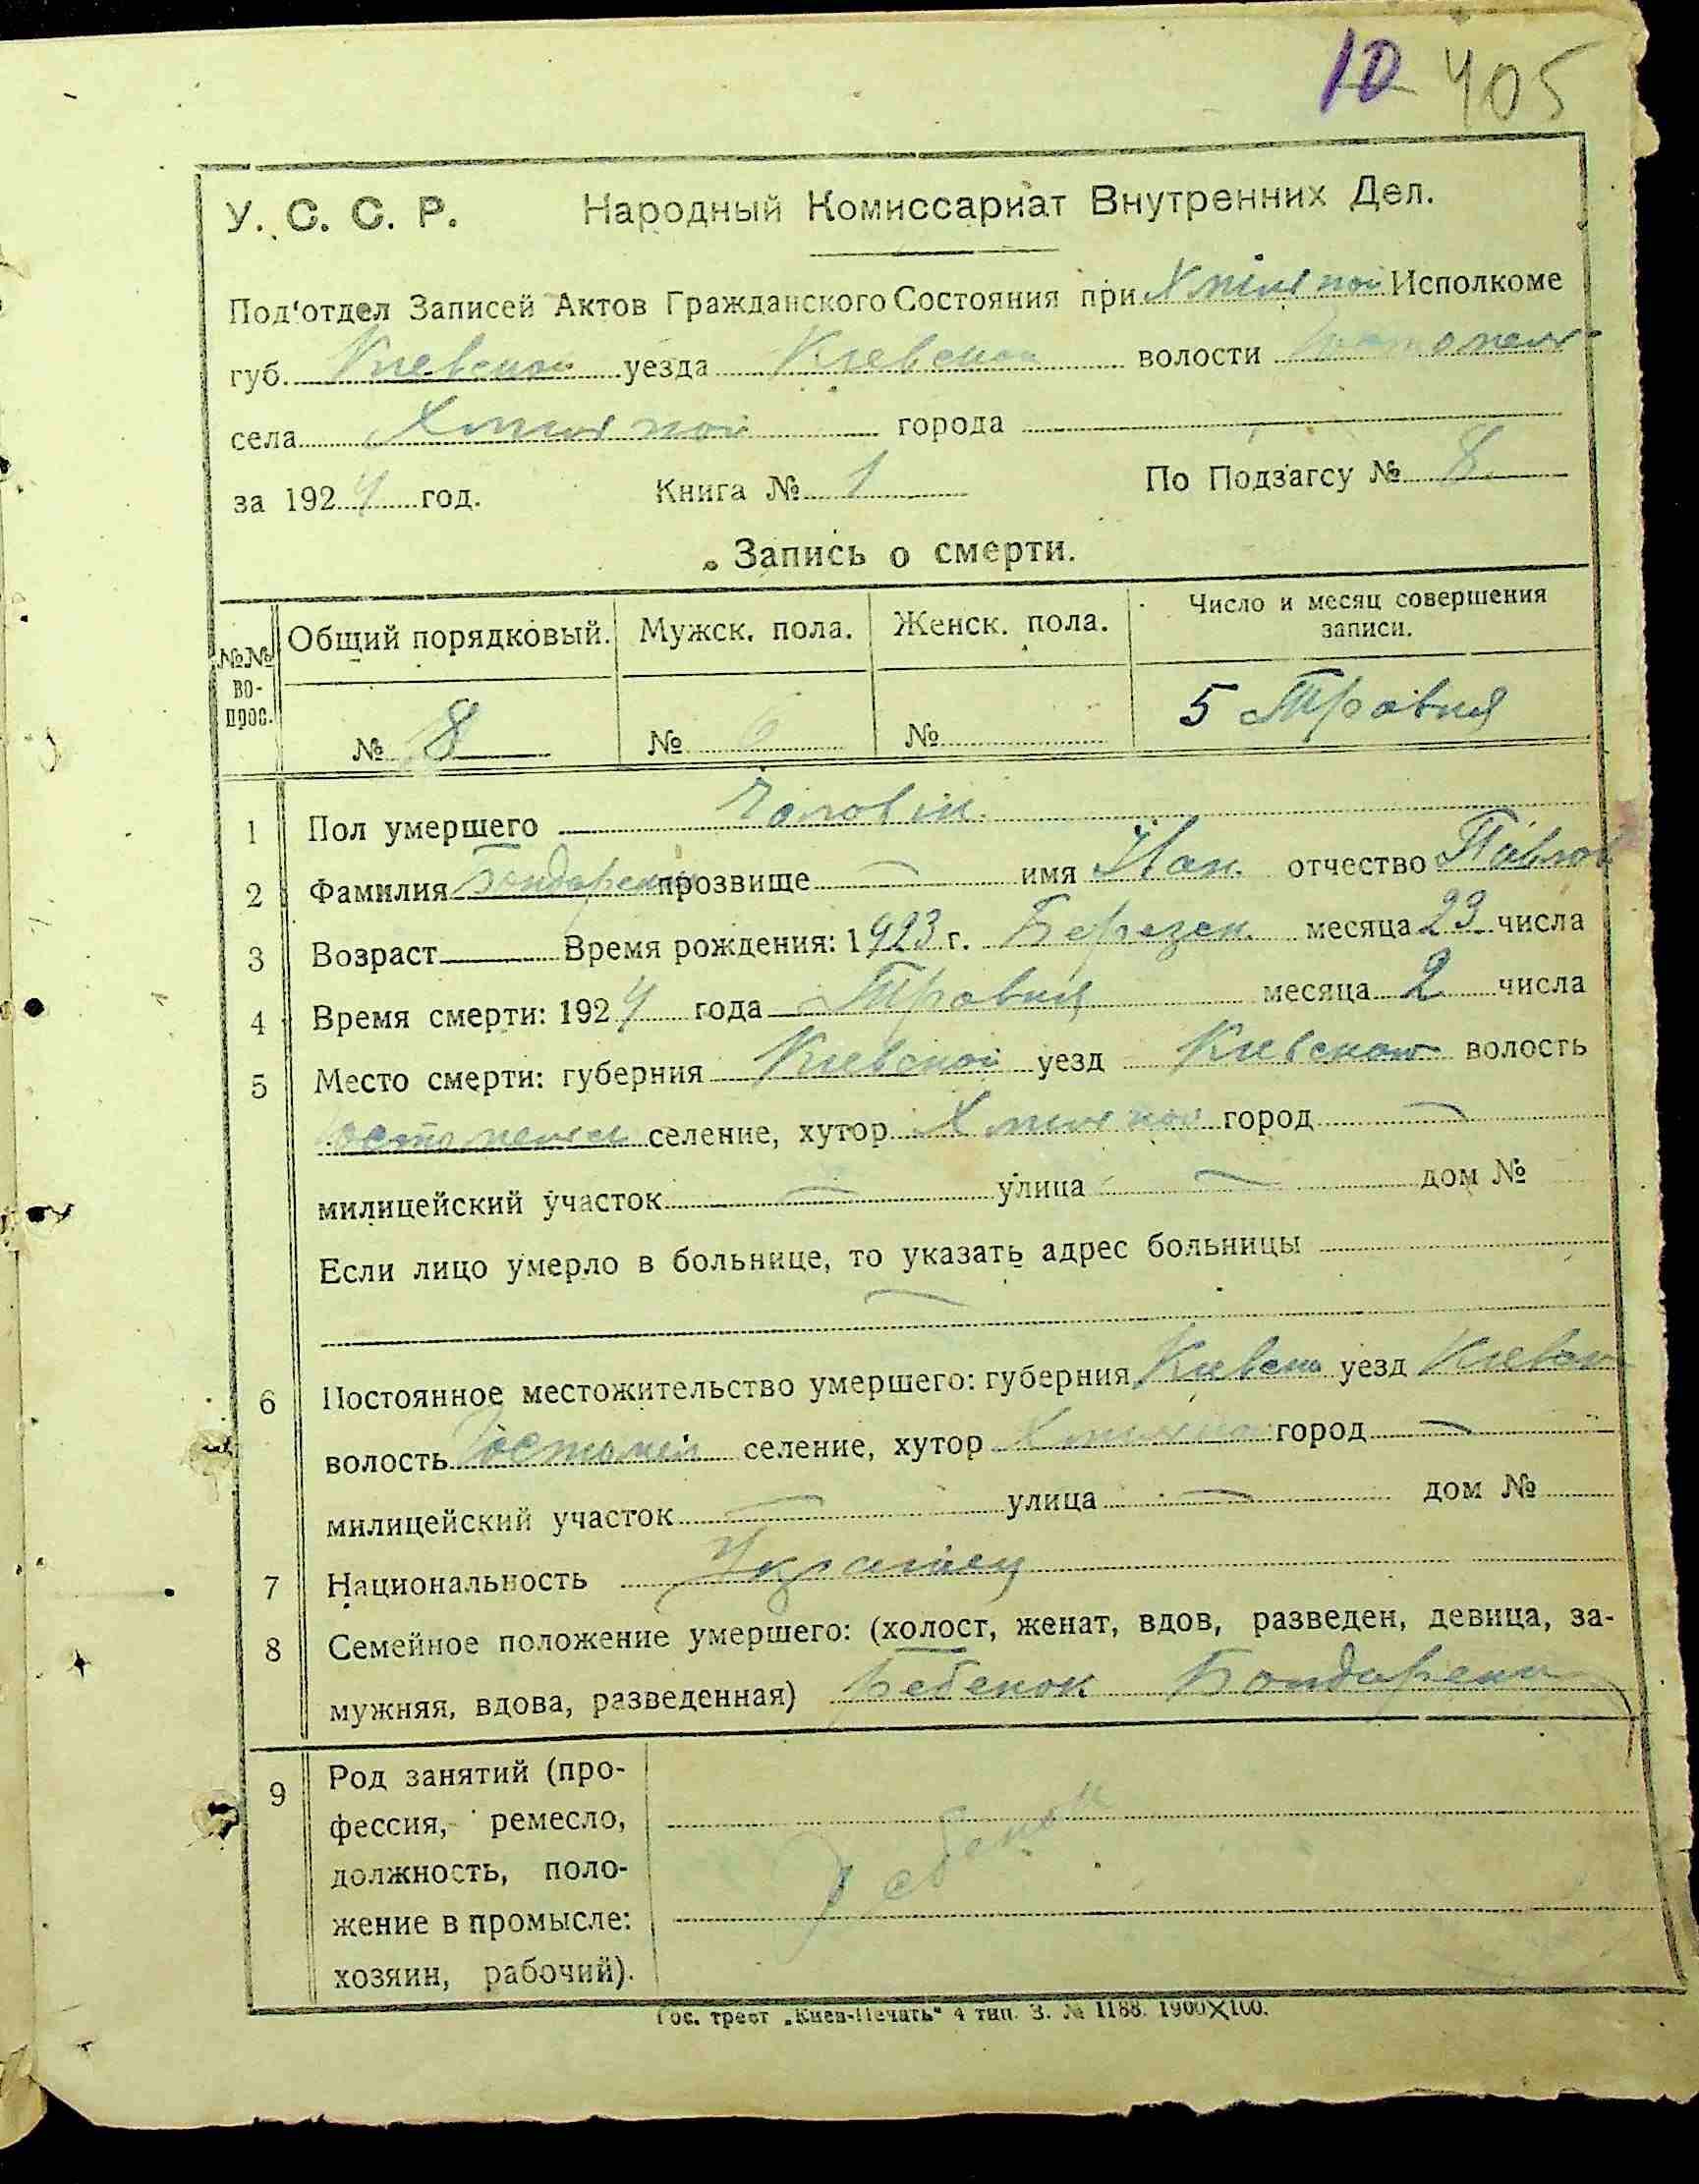 10 405
У. С. С. Р. Народный Комиссариат Внутренних Дел.
Под'отдел Записей Актов Гражданского Состояния при Исполкоме
губ. Киевской уезда Киевской волости
села города
за 1924 год. Книга № 1 По Подзагсу № 8
Запись о смерти.
№№ во-прос. Общий порядковый. Мужск. пола. Женск. пола. Число и месяц совершения записи.
№ 8 № 6 № 5 Травня
1 Пол умершего Чоловік
2 Фамилия Бондаренко прозвище — имя Іван отчество Павлов
3 Возраст Время рождения: 1923 г. Березен. месяца 23 числа
4 Время смерти: 1924 года Травня месяца 2 числа
5 Место смерти: губерния Киевской уезд Киевской волость
селение, хутор город —
милицейский участок — улица — дом №
Если лицо умерло в больнице, то указать адрес больницы
—
6 Постоянное местожительство умершего: губерния Киевск уезд Киевск
волость Гостомел селение, хутор город —
милицейский участок — улица — дом №
7 Национальность
8 Семейное положение умершего: (холост, женат, вдов, разведен, девица, за-
мужняя, вдова, разведенная) ребенок Бондаренко
9 Род занятий (про-
фессия, ремесло,
должность, поло-
жение в промысле:
хозяин, рабочий).
ребенок
Гос. трест „Киев-Печать“ 4 тип. З. № 1188. 1900X100.